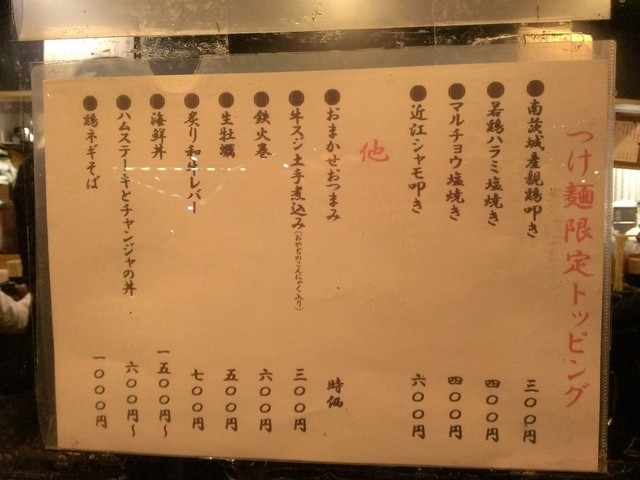 つけ麺限定トッピング
●南茨城産親鶏叩き 三〇〇円
●若鶏ハラミ塩焼き 四〇〇円
●マルチョウ塩焼き 四〇〇円
●近江シャモ叩き 六〇〇円
他
●おまかせおつまみ 時価
●牛スジ土手煮込み(おやぢのこんにゃく入り) 三〇〇円
●鉄火巻 六〇〇円
●生牡蠣 五〇〇円
●炙り和牛レバー 七〇〇円
●海鮮丼 一五〇〇円〜
●ハムステーキとチャンジャの丼 六〇〇円〜
●鶏ネギそば 一〇〇〇円